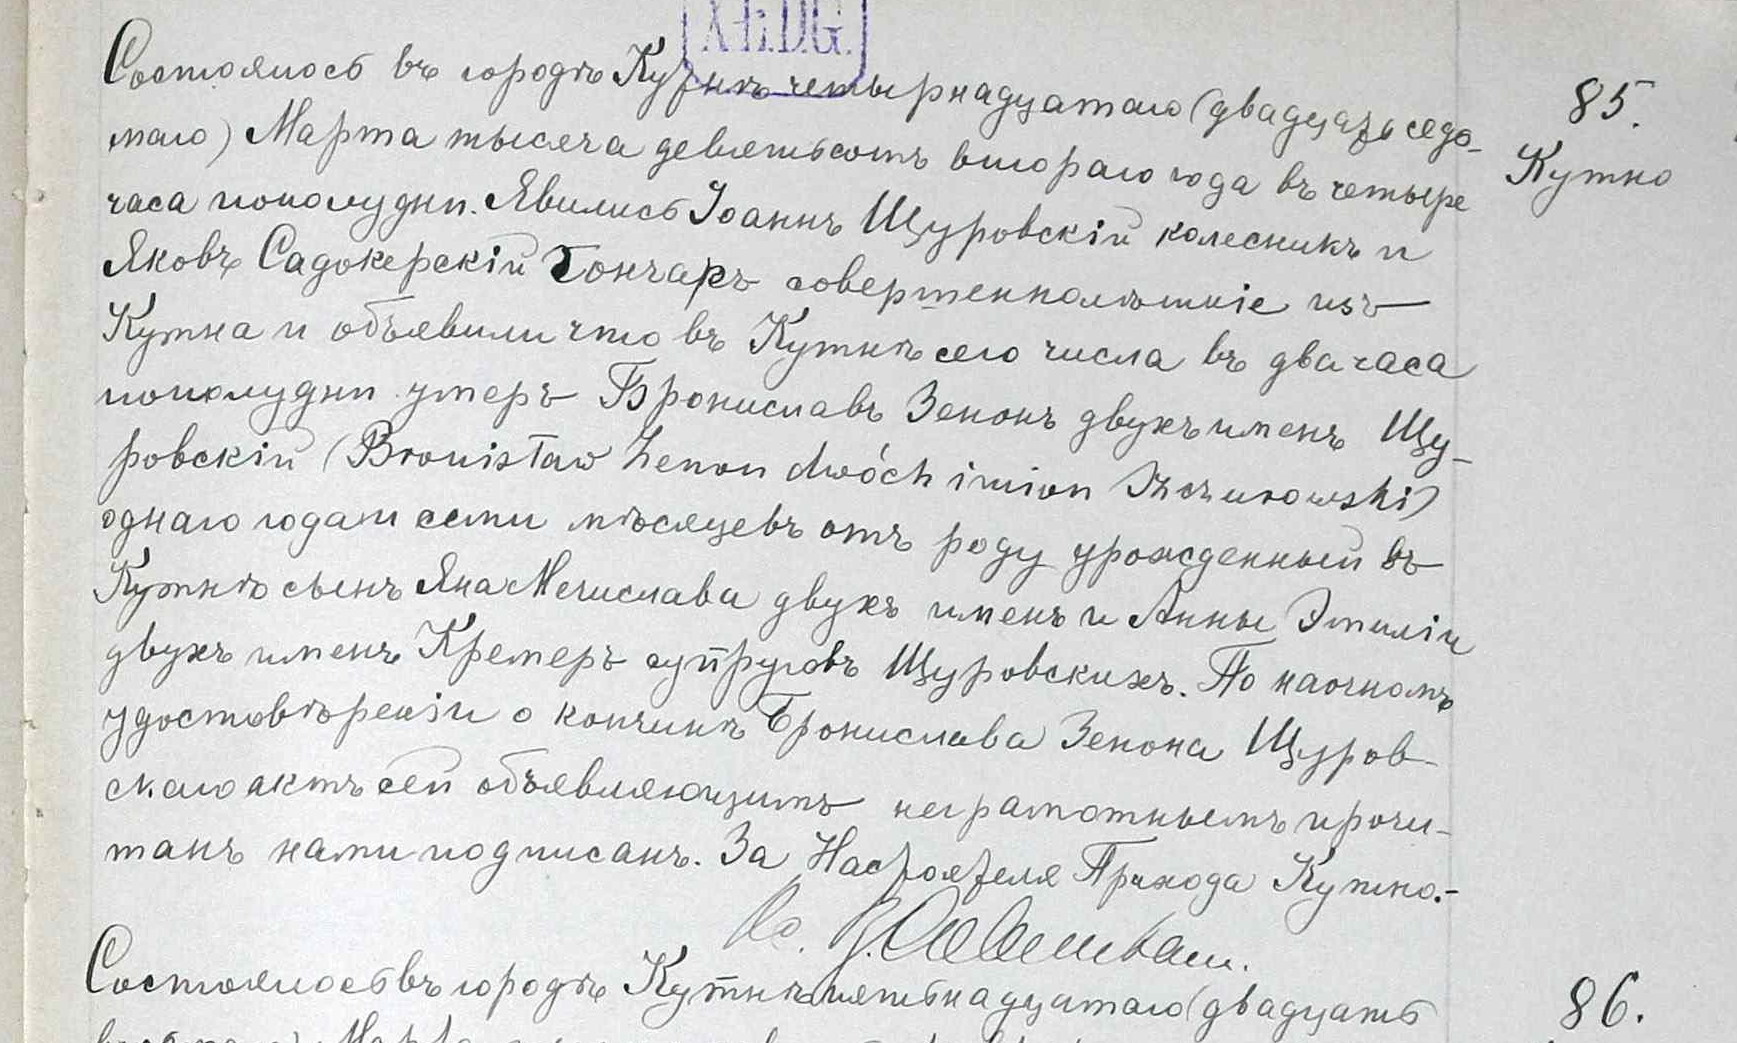 Х.Ъ.D.G.
Состоялось въ городѣ Кутнѣ четырнадцатаго (двадцать седь-
85.
маго) Марта тысяча девятьсотъ втораго года въ четыре
Кутно
часа пополудни. Явились Іоаннъ Щуровскій колесникъ и
Яковъ Садокерскій гончаръ совершеннолѣтніе изъ
Кутна и объявили что въ Кутнѣ сего числа въ два часа
пополудни умеръ Брониславъ Зенонъ двухъ именъ Щу-
ровскій (Bronisław Zenon dwóch imion Szczurowski)
однаго года и семи мѣсяцевъ отъ роду урожденный въ
Кутнѣ сынъ Яна Мечислава двухъ именъ и Анны Эмиліи
двухъ именъ Кремеръ супруговъ Щуровскихъ. По наочномъ
удостовѣреніи о кончинѣ Бронислава Зенона Щуров-
скаго актъ сей объявляющимъ неграмотнымъ прочи-
танъ нами подписанъ. За Настоятеля Прихода Кутно.-
Состоялось въ городѣ Кутнѣ пятьнадцатаго (двадцать
86.